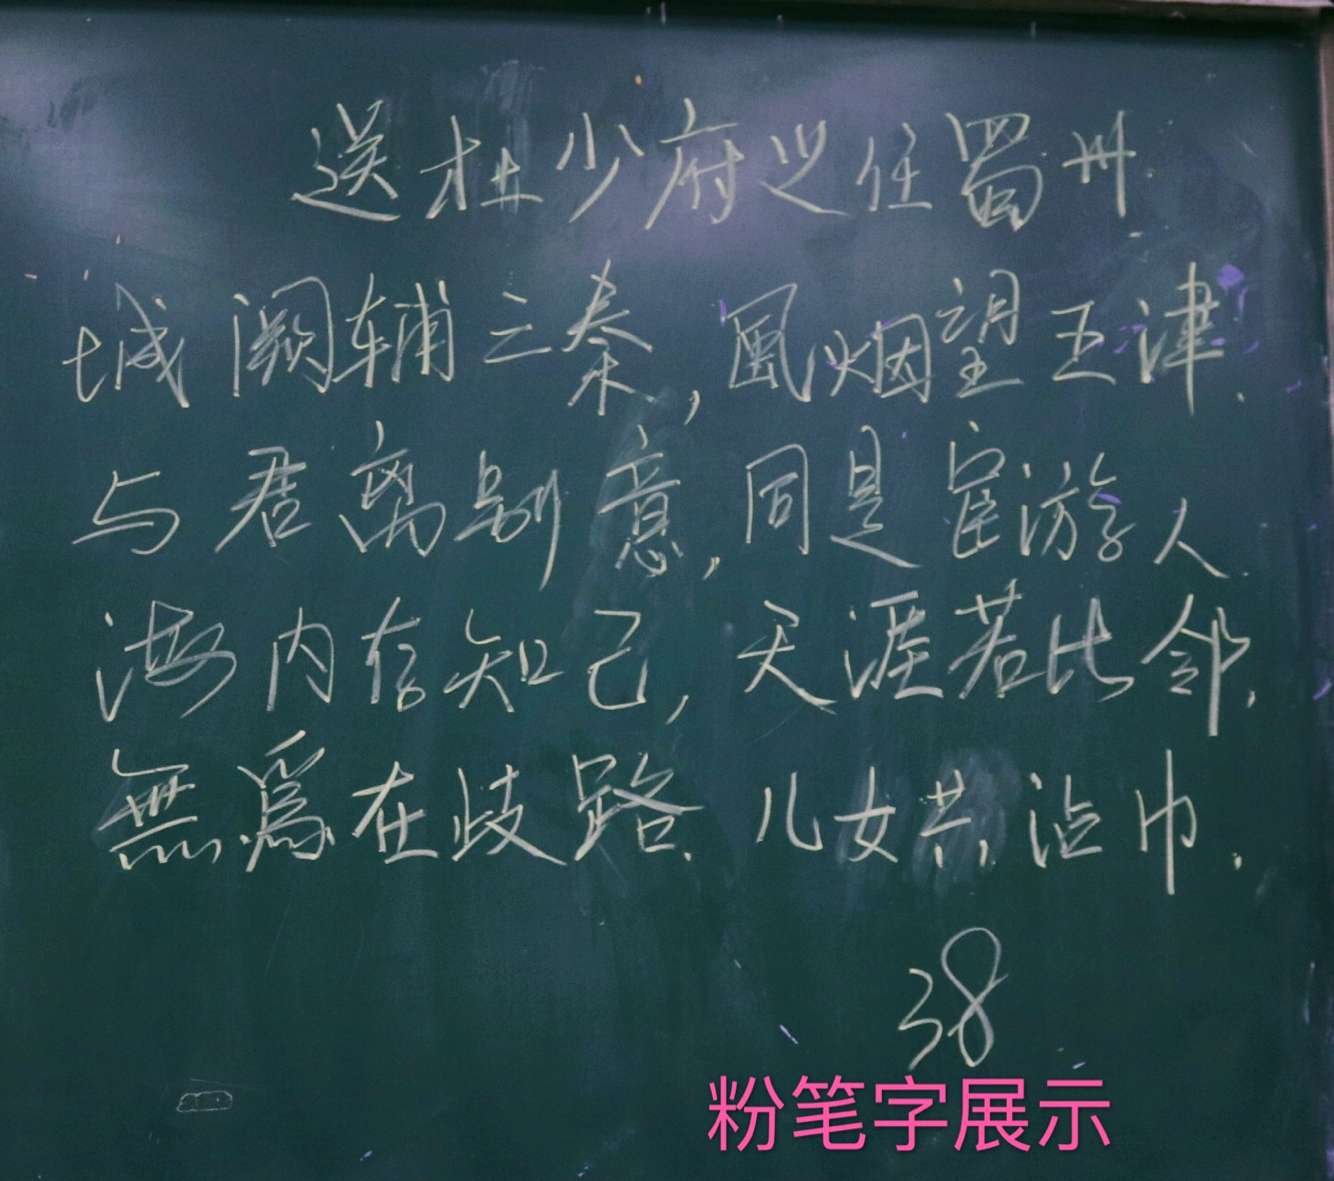 送杜少府之任蜀州
城阙辅三秦,風烟望五津.
与君离别意,同是宦游人.
海内存知己,天涯若比邻.
無為在歧路.儿女共沾巾.
38
粉笔字展示